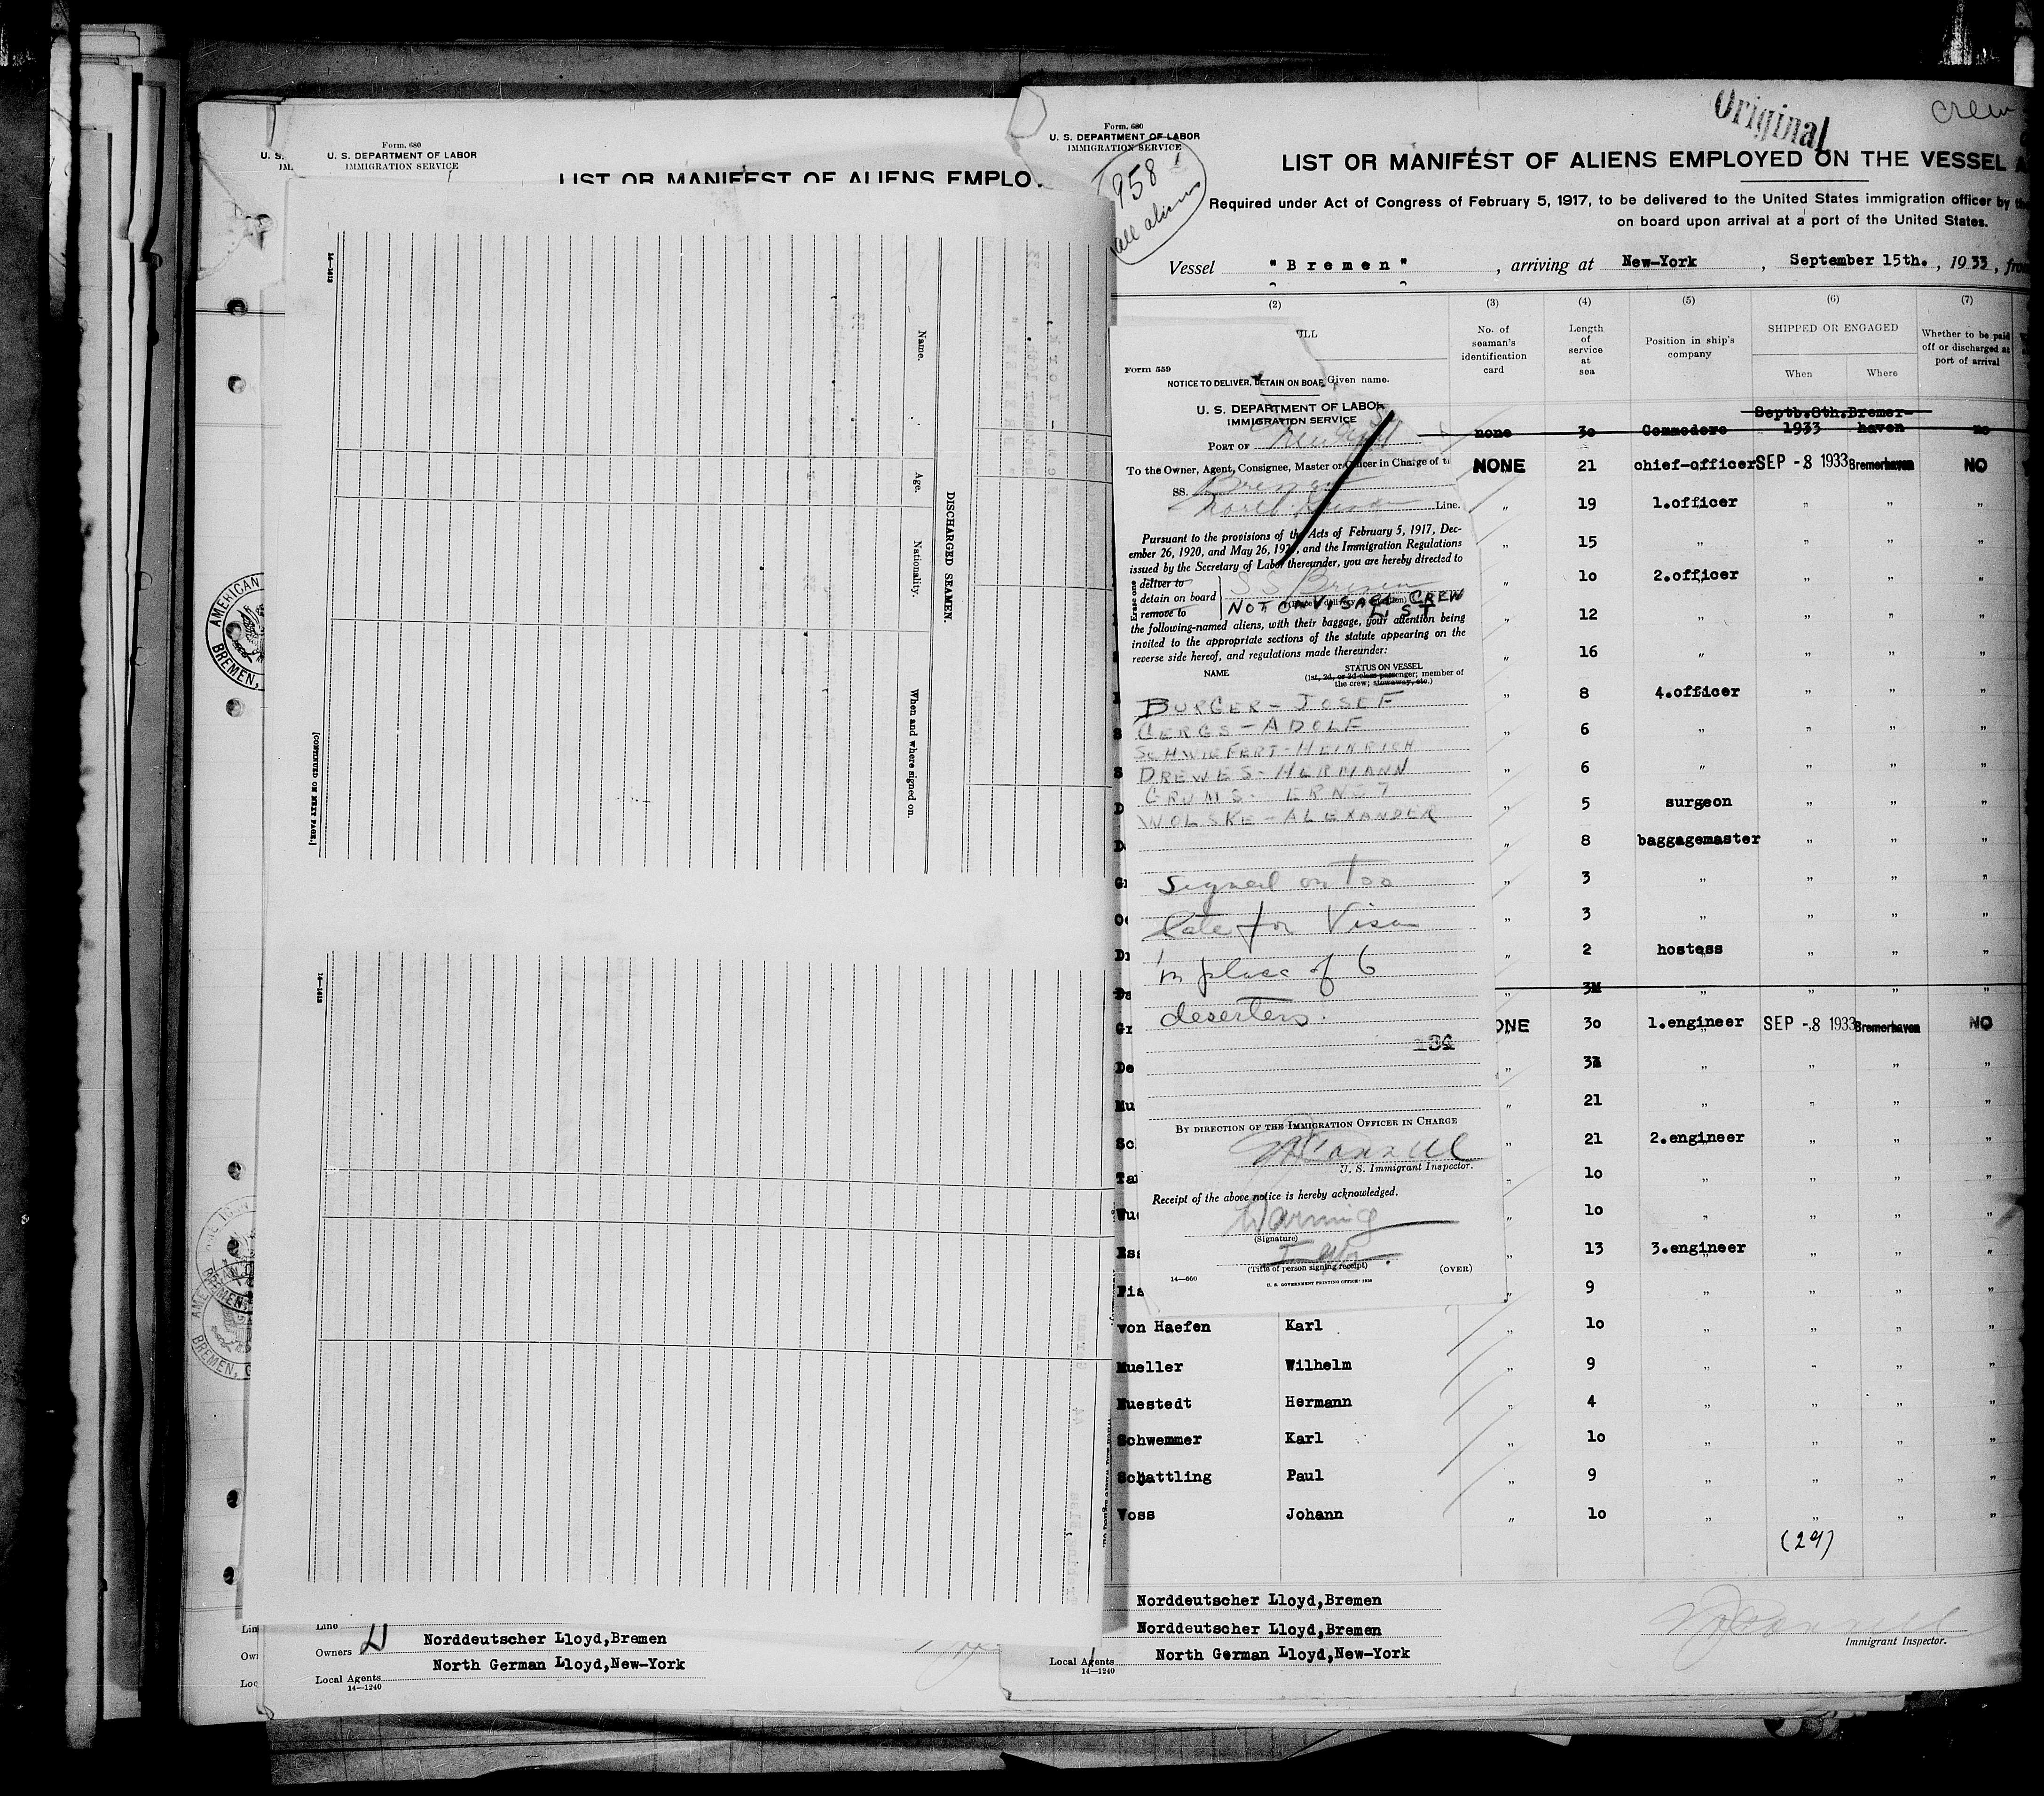 Form. 680
U. S. DEPARTMENT OF LABOR
IMMIGRATION SERVICE
LIST OR MANIFEST OF ALIENS EMPLO
14—1812
Name.
Age.
Nationality.
When and where signed on.
DISCHARGED SEAMEN.
[CONTINUED ON NEXT PAGE.]
14—1812
AMERICAN
BREMEN,
Line
Owners
Norddeutscher Lloyd,Bremen
Local Agents
North German Lloyd,New-York
14—1240
Form. 680
U. S. DEPARTMENT OF LABOR
IMMIGRATION SERVICE
Original
crew
958
all aliens
LIST OR MANIFEST OF ALIENS EMPLOYED ON THE VESSEL
Required under Act of Congress of February 5, 1917, to be delivered to the United States immigration officer by the
on board upon arrival at a port of the United States.
Vessel "Bremen" , arriving at New-York , September 15th. , 1933 , from
(2) (3) (4) (5) (6) (7)
No. of seaman's identification card
Length of service at sea
Position in ship's company
SHIPPED OR ENGAGED
When
Where
Whether to be paid off or discharged at port of arrival
Given name.
Form 559
NOTICE TO DELIVER, DETAIN ON BOAR
U. S. DEPARTMENT OF LABOR
IMMIGRATION SERVICE
PORT OF New York
To the Owner, Agent, Consignee, Master or Officer in Charge of t
SS. Bremen
Line.
Pursuant to the provisions of the Acts of February 5, 1917, Dec-
ember 26, 1920, and May 26, 192 , and the Immigration Regulations
issued by the Secretary of Labor thereunder, you are hereby directed to
Erase one
deliver to
detain on board
remove to
SS Bremen
NOT ON VISAED CREW
LIST
the following-named aliens, with their baggage, your attention being
invited to the appropriate sections of the statute appearing on the
reverse side hereof, and regulations made thereunder:
NAME
STATUS ON VESSEL
(1st, 2d, or 3d class passenger; member of
the crew; stowaway, etc.)
BURGER - JOSEF
GERGS - ADOLF
SCHWIEFERT - HEINRICH
DREWES - HERMANN
GRUMS - ERNST
WOLSKE - ALEXANDER
Signed on too
late for Visa
in place of 6
deserters.
BY DIRECTION OF THE IMMIGRATION OFFICER IN CHARGE
U. S. Immigrant Inspector.
Receipt of the above notice is hereby acknowledged.
(Signature)
(Title of person signing receipt)
(OVER)
14—660
U. S. GOVERNMENT PRINTING OFFICE: 1930
Septb.8th. Bremer-
none 3o Commodore 1933 haven no
NONE 21 chief-officer SEP -8 1933 Bremerhaven NO
" 19 1.officer " " "
" 15 " " " "
" 1o 2.officer " " "
" 12 " " " "
" 16 " " " "
" 8 4.officer " " "
" 6 " " " "
" 6 " " " "
" 5 surgeon " " "
" 8 baggagemaster " " "
" 3 " " " "
" 3 " " " "
" 2 hostess " " "
" " " " "
ONE 3o 1.engineer SEP -8 1933 Bremerhaven NO
" " " " "
" 21 " " " "
" 21 2.engineer " " "
" 1o " " " "
" 1o " " " "
" 13 3.engineer " " "
" 9 " " " "
von Haefen Karl " 1o " " " "
Mueller Wilhelm " 9 " " " "
Nuestedt Hermann " 4 " " " "
Schwemmer Karl " 1o " " " "
Schattling Paul " 9 " " " "
Voss Johann " 1o " " " "
(29)
Norddeutscher Lloyd,Bremen
Norddeutscher Lloyd,Bremen
Local Agents North German Lloyd,New-York
14—1240
Immigrant Inspector.